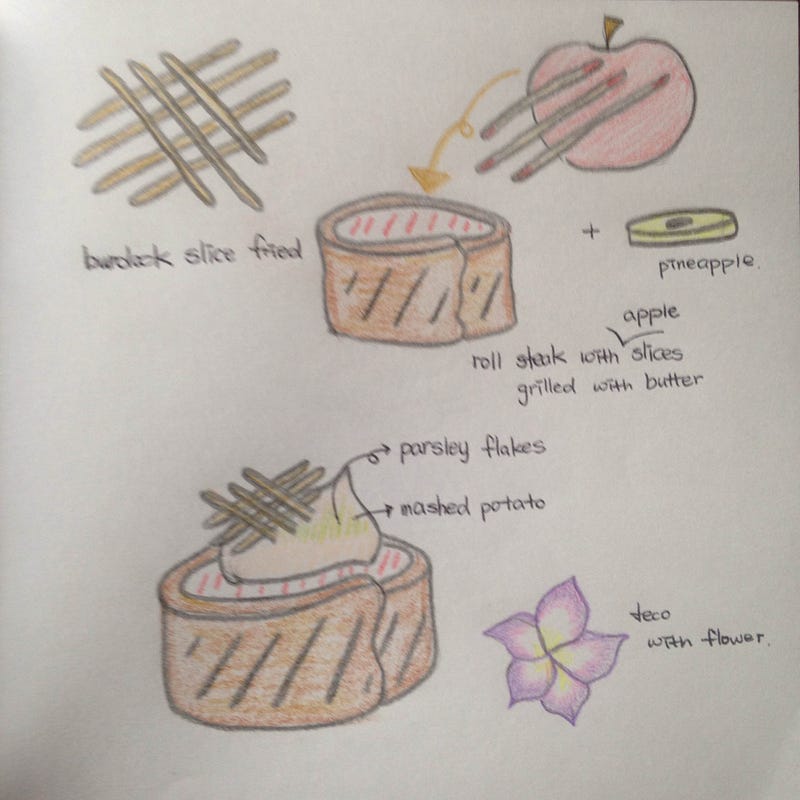 burdock slice fried
+
pineapple.
apple
roll steak with slices
grilled with butter
parsley flakes
mashed potato
deco
with flower.